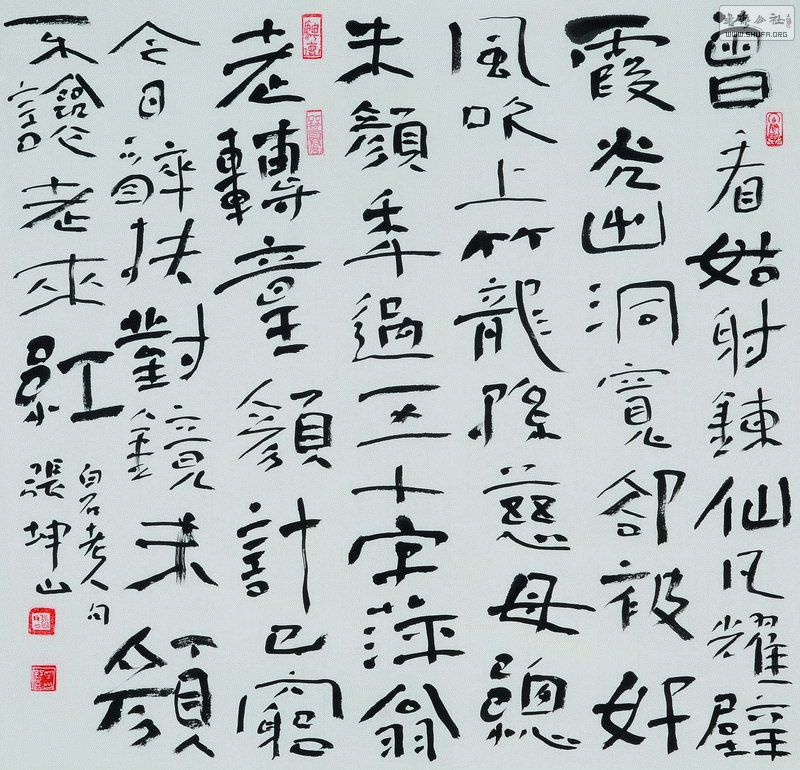 曾看姑射鍊仙丹耀壁
霞光出洞寬卻被奸
風吹上竹龍孫慈母總
朱顏年過五十字萍翁
老轉童顏計已窮
今日醉扶對鏡朱顏
不老來紅
白石老人句
張坤山
书法公社
WWW.SHUFA.ORG